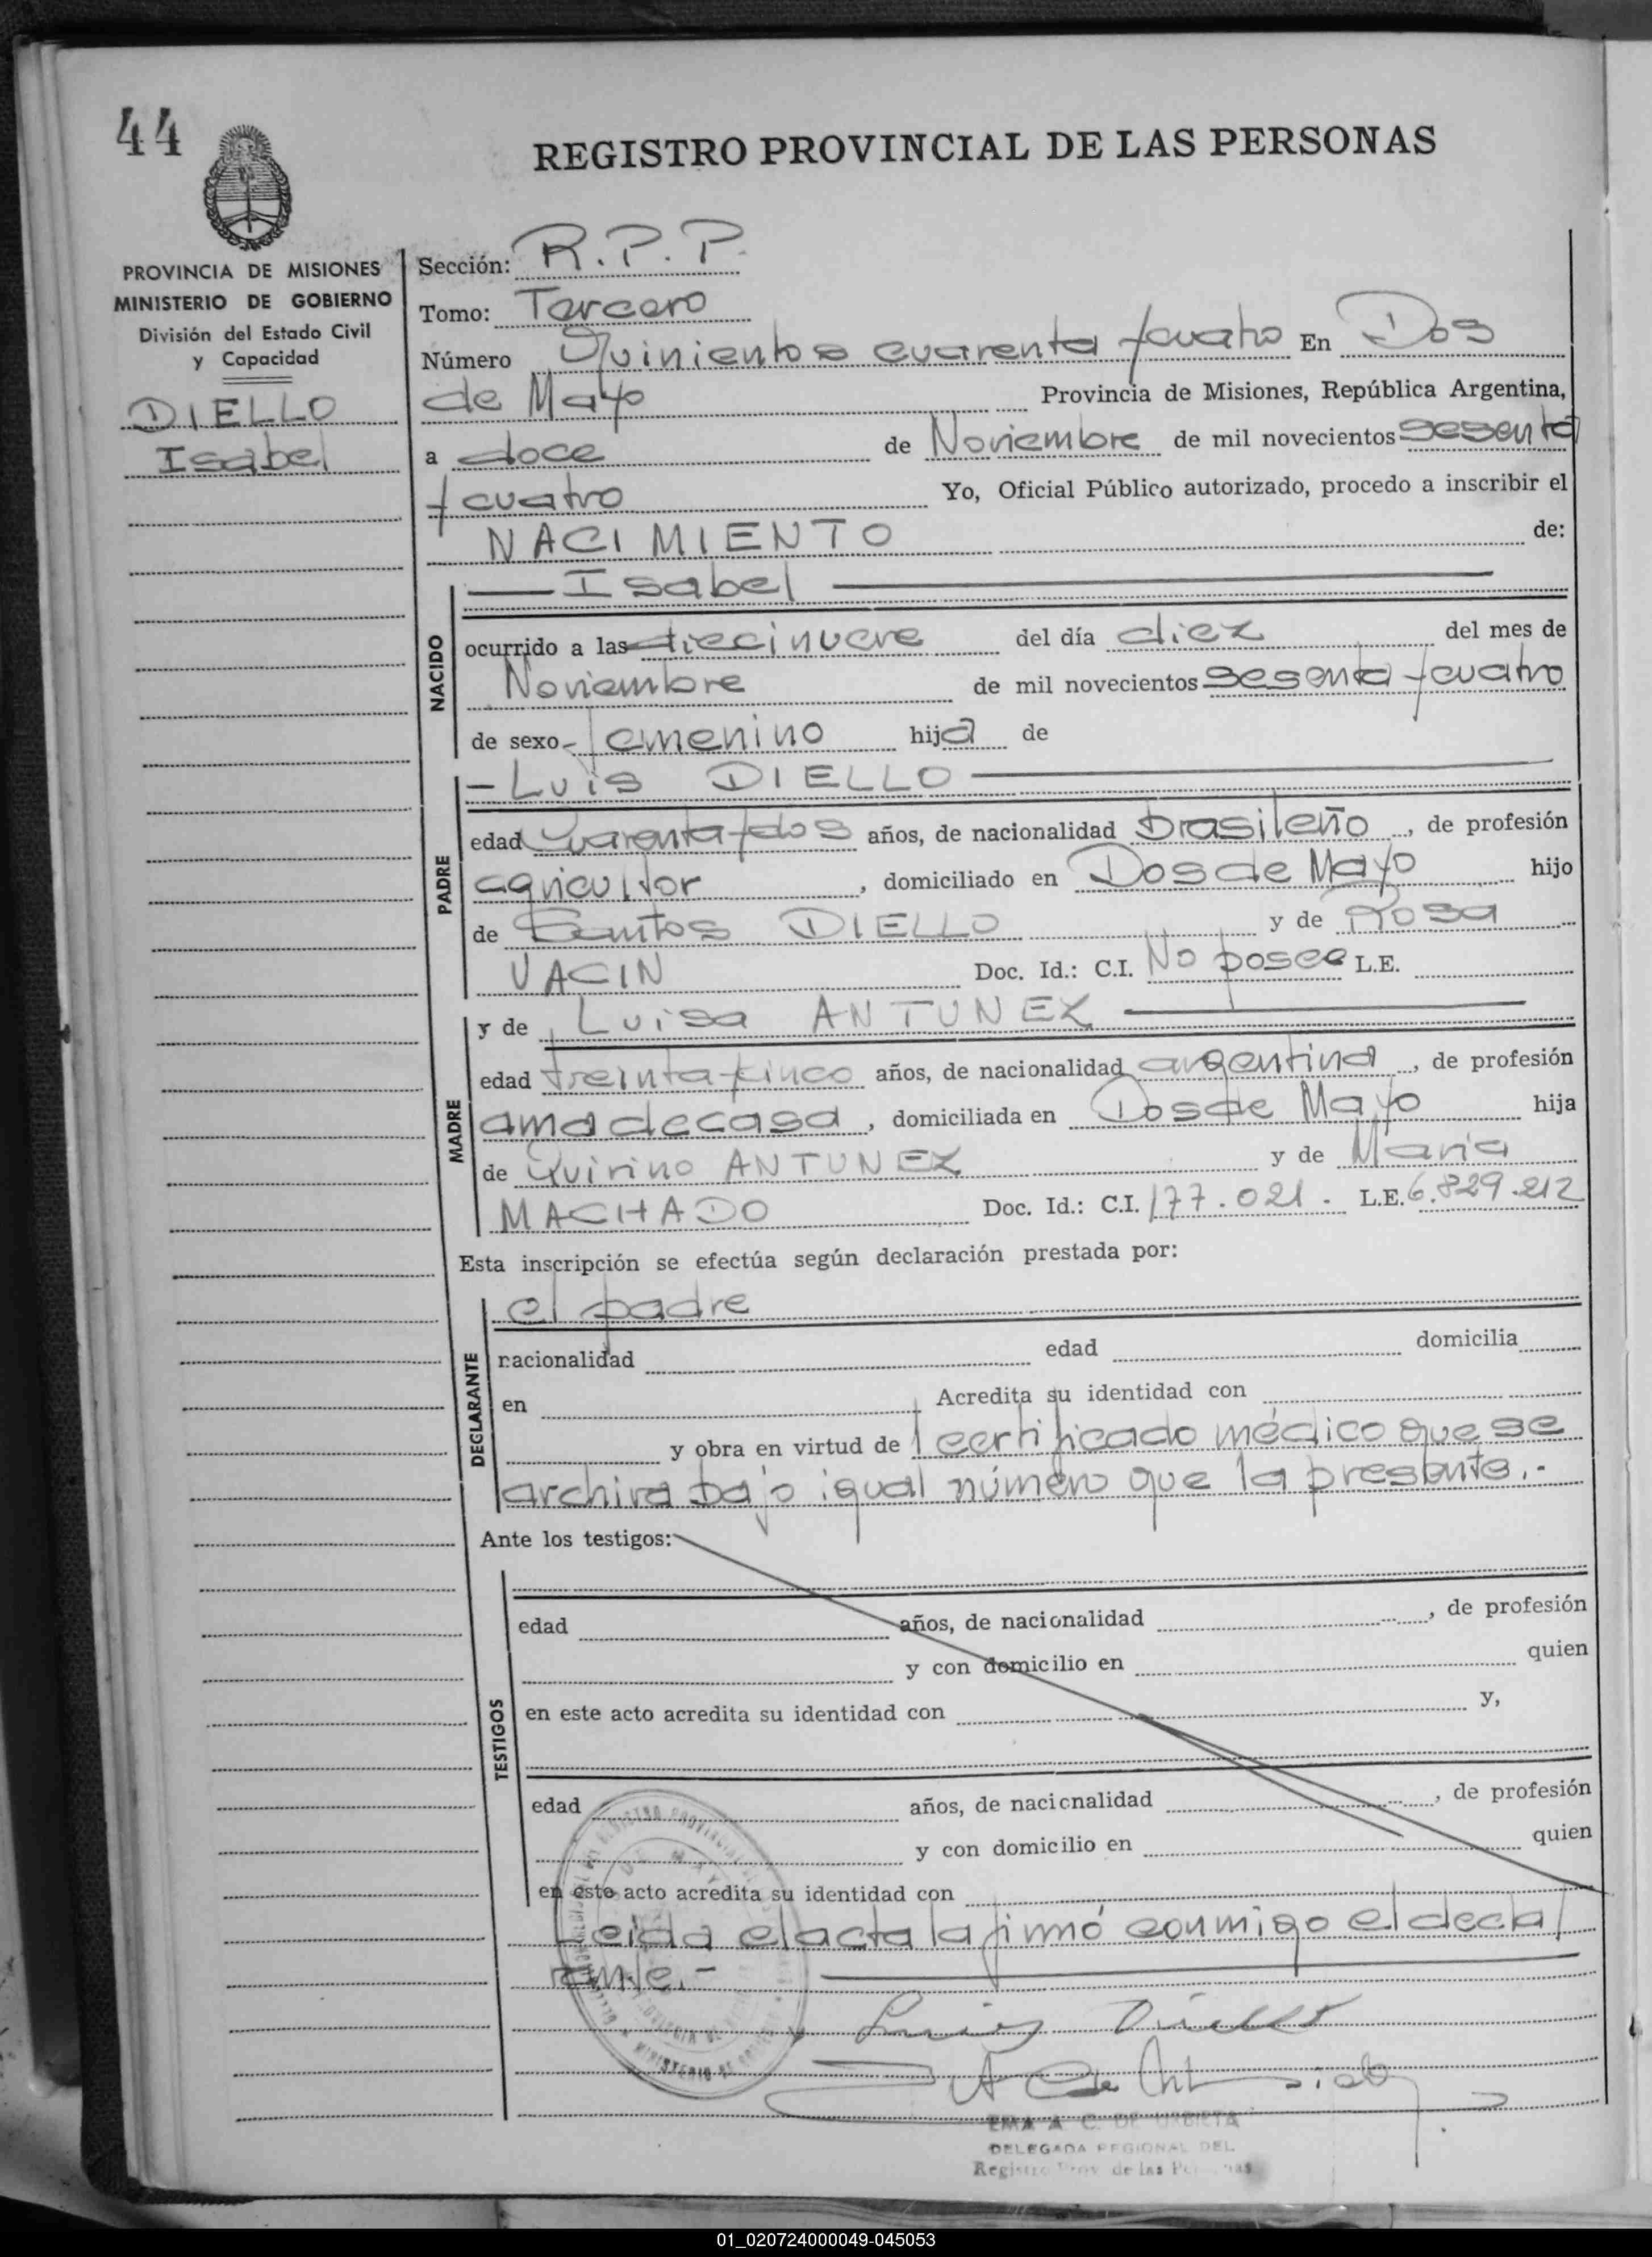 44
REGISTRO PROVINCIAL DE LAS PERSONAS
PROVINCIA DE MISIONES
MINISTERIO DE GOBIERNO
División del Estado Civil
y Capacidad
DIELLO
Isabel
Sección: R.P.P.
Tomo: Tercero
Número Quinientos cuarenta y cuatro En Dos
de Mayo Provincia de Misiones, República Argentina,
a doce de Noviembre de mil novecientos sesenta
y cuatro Yo, Oficial Público autorizado, procedo a inscribir el
NACIMIENTO de:
NACIDO
— Isabel —
ocurrido a las diecinueve del día diez del mes de
Noviembre de mil novecientos sesenta y cuatro
de sexo femenino hija de
PADRE
- Luis DIELLO —
edad Cuarenta y dos años, de nacionalidad brasileño, de profesión
agricultor, domiciliado en Dos de Mayo hijo
de Santos DIELLO y de Rosa
VACIN Doc. Id.: C.I. No posee L.E.
MADRE
y de Luisa ANTUNEZ —
edad treinta y cinco años, de nacionalidad argentina, de profesión
ama de casa, domiciliada en Dos de Mayo hija
de Quirino ANTUNEZ y de Maria
MACHADO Doc. Id.: C.I. 177.021. L.E. 6.829.212
Esta inscripción se efectúa según declaración prestada por:
DECLARANTE
el padre
nacionalidad edad domicilia
en Acredita su identidad con
y obra en virtud de 1 certificado médico que se
archiva bajo igual número que la presente.-
Ante los testigos:
TESTIGOS
edad años, de nacionalidad , de profesión
y con domicilio en quien
en este acto acredita su identidad con y,
edad años, de nacionalidad , de profesión
y con domicilio en quien
en este acto acredita su identidad con
Leida el acta la firmó conmigo el decla
rante.-
Luis Diello
EMA A C. DE URBIETA
DELEGADA REGIONAL DEL
Registro Prov de las Personas
01_020724000049-045053